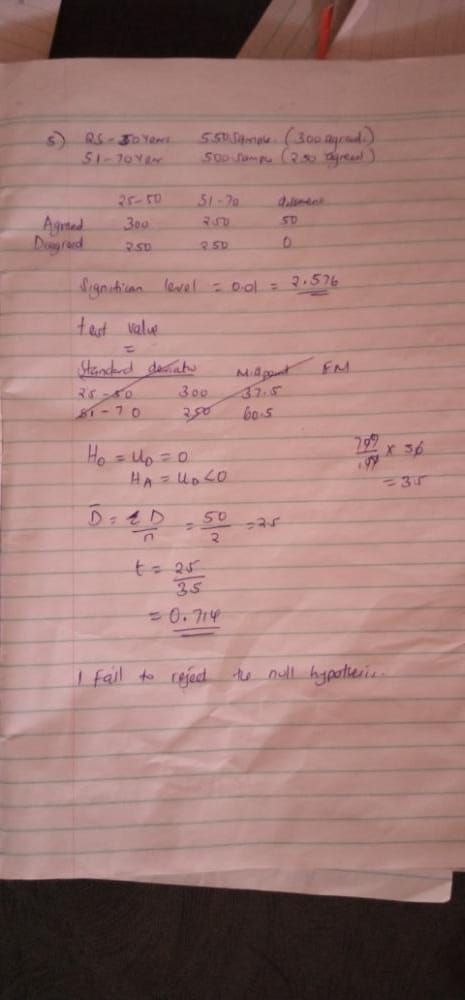 5) 25-50 Years 550 Sample (300 agreed.)
51-70 Year 500 Sample (250 agreed)
25-50 51-70
Agreed 300 250 50
Disagreed 250 250 0
Significan level = 0.01 = 2.576
test value
=
Standard deviatio Midpoint FM
25-50 300 37.5
51-70 250 60.5
H0 = UD = 0
HA = UD < 0
× 50
= 35
D̄ = ΣD/n = 50/2 = 25
t = 25/35
= 0.714
I Fail to reject the null hypothesis.